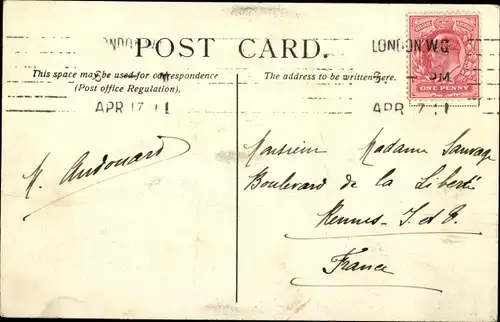 LONDON W.C
POST CARD.
This space may be used for correspondence
(Post office Regulation).
The address to be written here.
LONDON W.C
PM
APR 17 11
APR 17 11
ONE PENNY
M. Audouard
Monsieur Madame Sauvage
Boulevard de la Liberté
Rennes - I. et V.
France